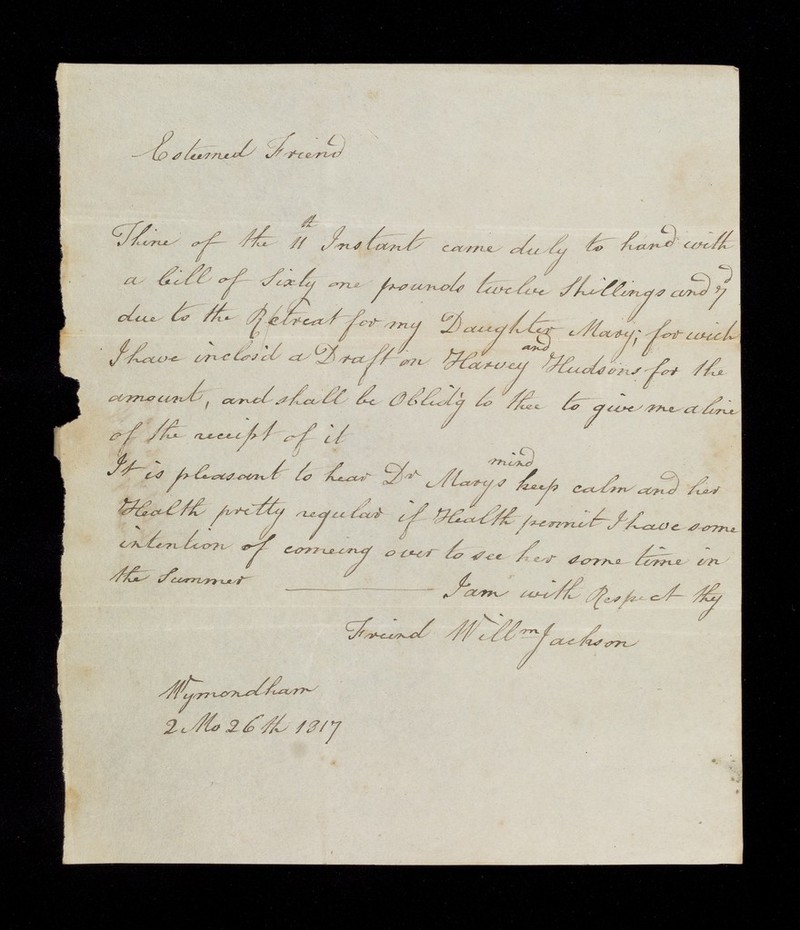 Esteemed Friend
Thine of the 11th Instant came duly to hand with
a bill of Sixty one pounds twelve Shillings and 7d
due to the Retreat for my Daughter Mary; for wich
I have inclos'd a Draft on Harvey and Hudsons for the
amount, and shall be Oblid'g to thee to give me a line
of the receipt of it
It is pleasant to hear Dr Marys mind keep calm and her
Health pretty regular if Health permit I have some
intention of comeing over to see her some time in
the Summer ——— I am with Respect thy
Friend Willm Jackson
Wymondham
2 Mo 26th 1817